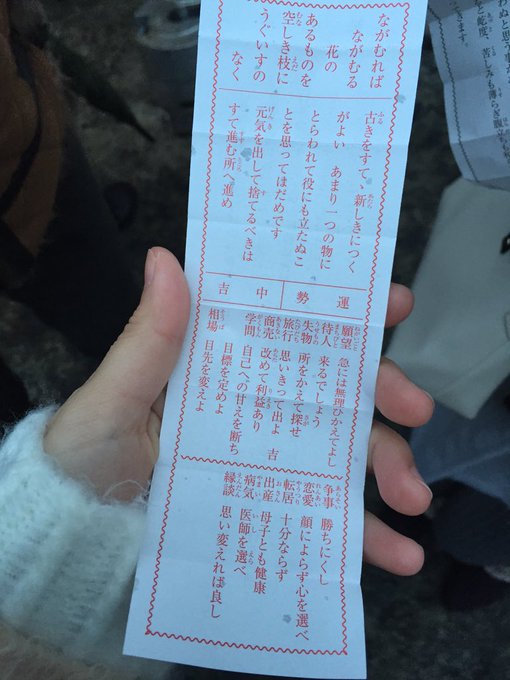 ながむれば
ながむる
花の
あるものを
空しき枝に
うぐいすの
なく
古きをすてゝ新しきにつく
がよい あまり一つの物に
とらわれて役にも立たぬこ
とを思ってはだめです
元気を出して捨てるべきは
すて進む所へ進め
運勢 中吉
願望 急には無理ひかえてよし
待人 来るでしょう
失物 所をかえて探せ
旅行 思いきって出よ 吉
商売 改めて利益あり
学問 自己への甘えを断ち
目標を定めよ
相場 目先を変えよ
争事 勝ちにくし
恋愛 顔によらず心を選べ
転居 十分ならず
出産 母子とも健康
病気 医師を選べ
縁談 思い変えれば良し
わぬと思う
苦しみも薄らぎ
きます。